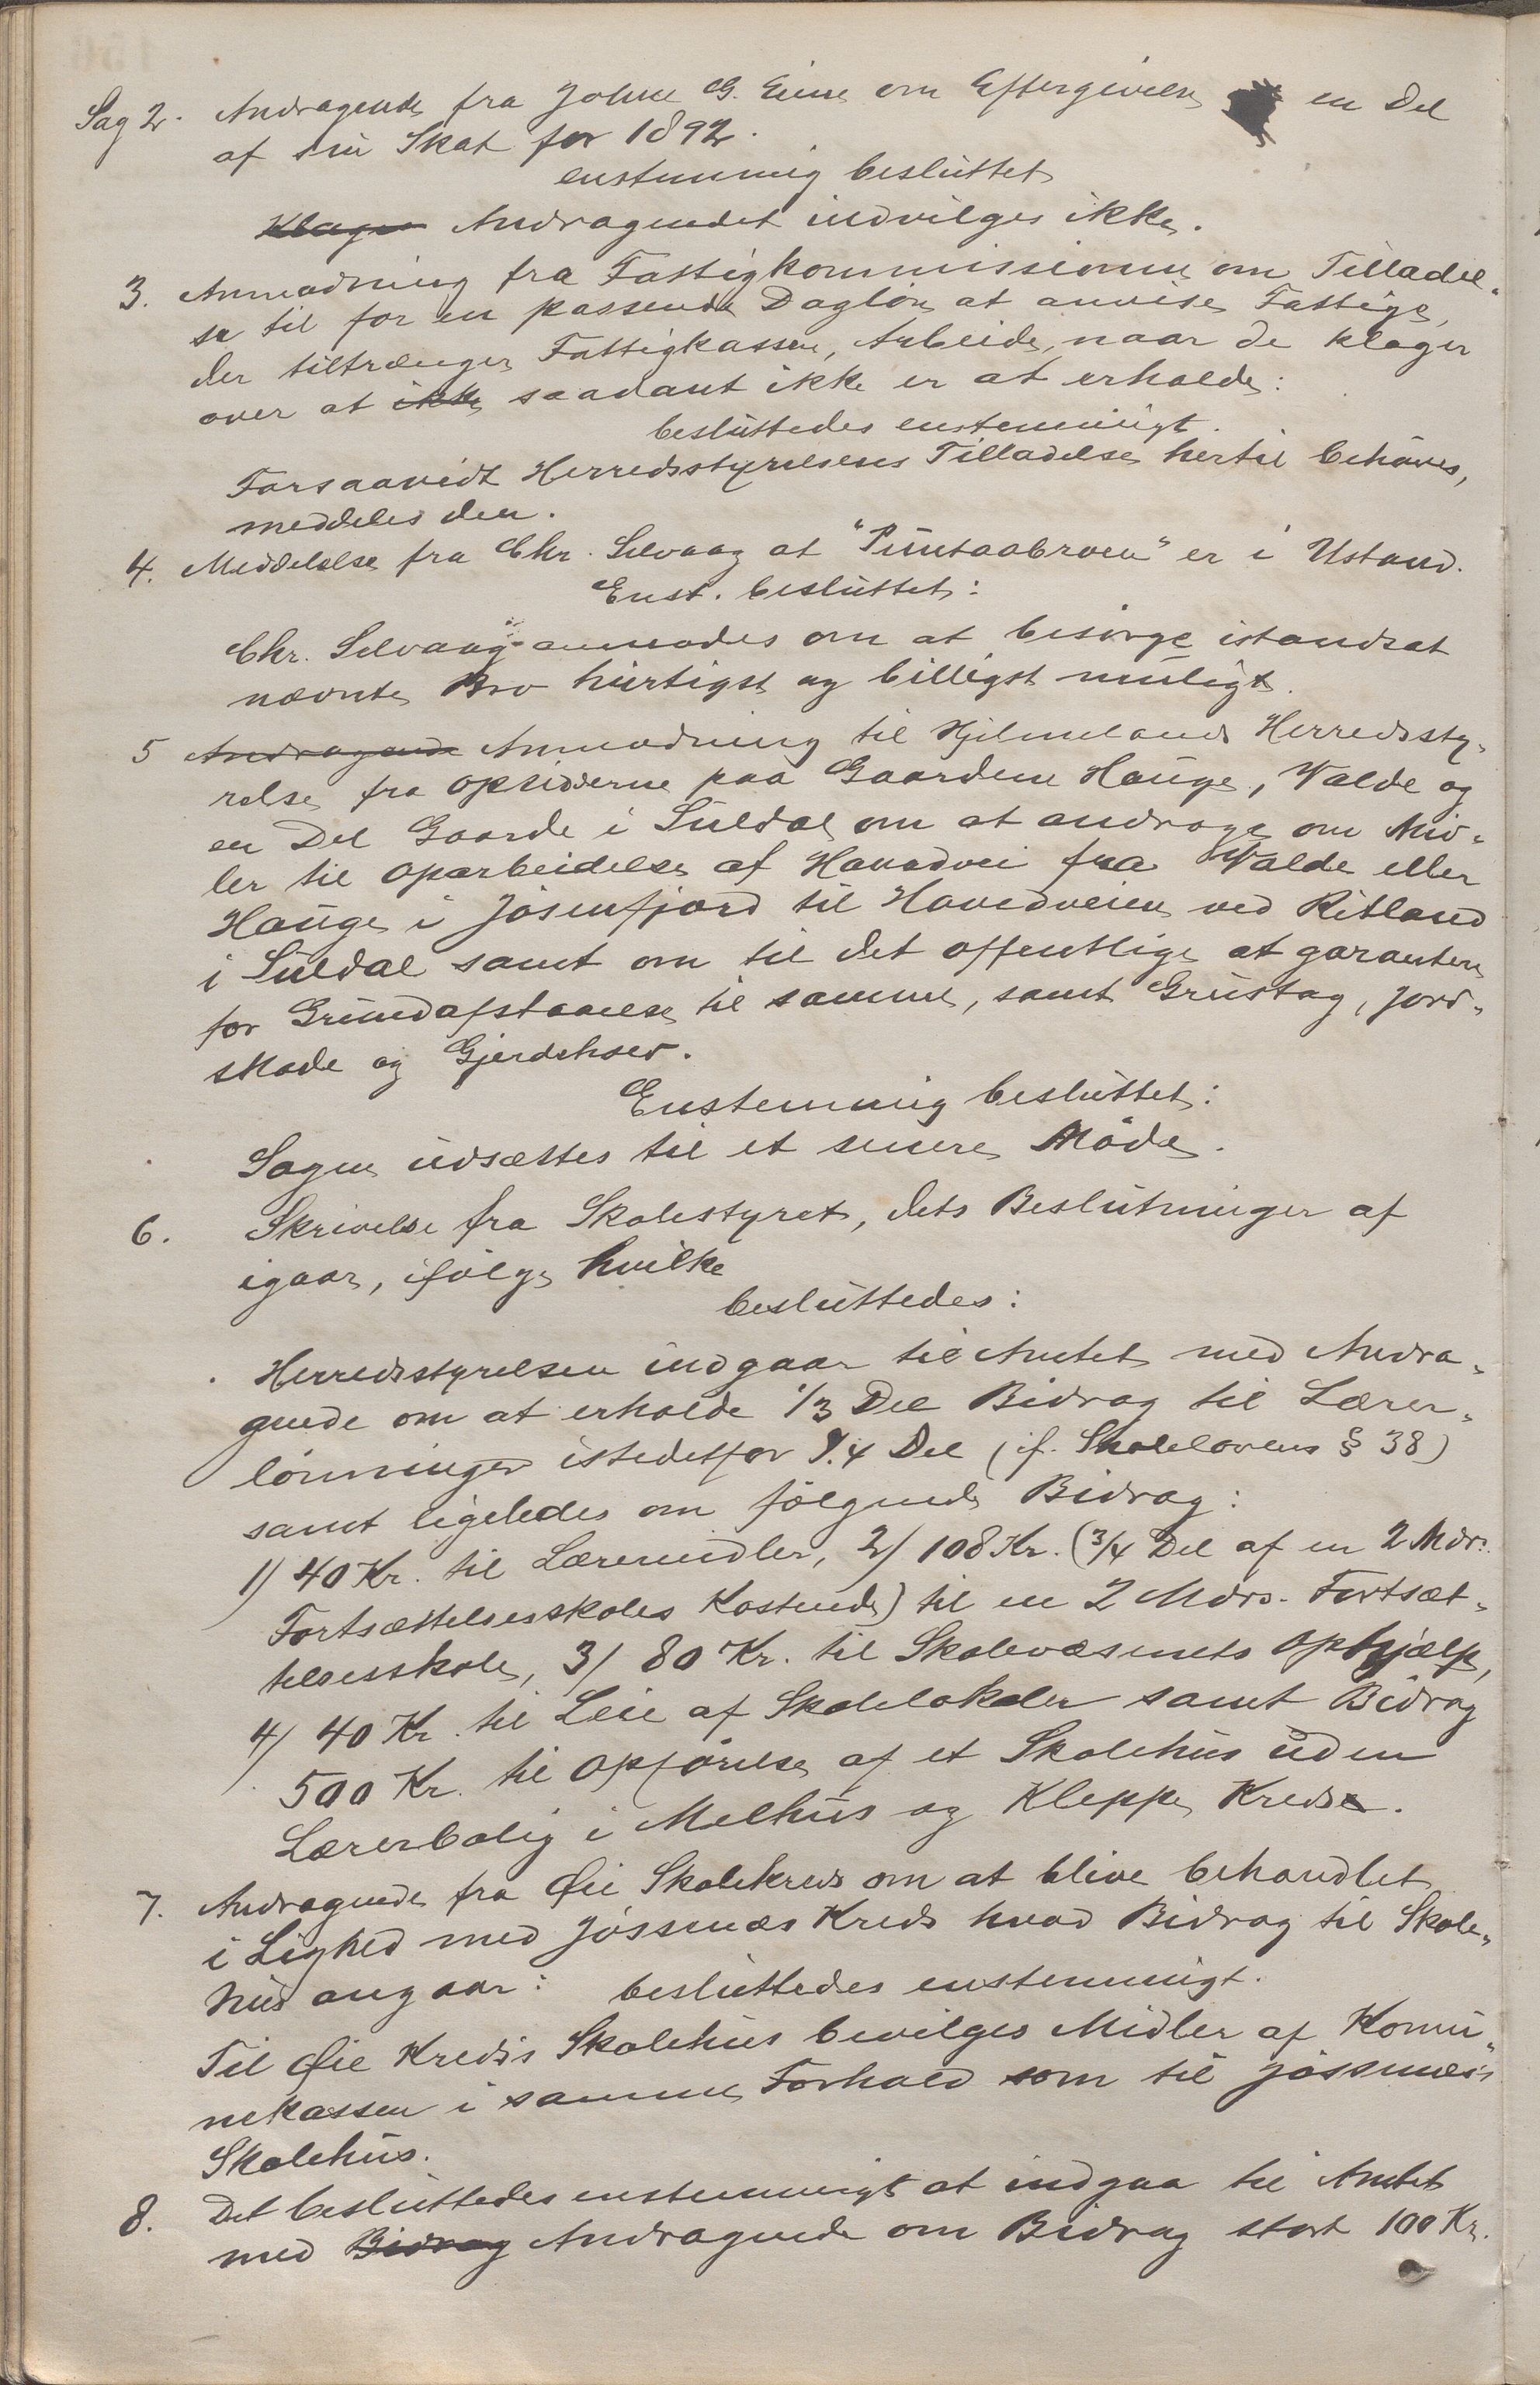 Sag 2. Andragende fra John G. Eime om Eftergivelse en Del
af sin Skat for 1892.
enstemmig besluttet
Klagen Andragendet indvilges ikke.
3. Anmodning fra Fattigkommissionen om Tilladel-
se til for en passende Dagløn at anvise Fattige,
der tiltrænger Fattigkassen, Arbeide, naar de klager
over at ikke saadant ikke er at erholde:
besluttedes enstemmigt.
Forsaavidt Herredsstyrelsens Tilladelse hertil behøves,
meddeles den.
4. Meddelelse fra Chr. Selvaag at "Puntaabroen" er i Ustand.
Enst. besluttet:
Chr. Selvaag anmodes om at besørge istandsat
nævnte Bro hurtigst og billigst muligt.
5 Andragende Anmodning til Hjelmelands Herredssty-
relse fra Opsidderne paa Gaardene Hauge, Valde og
en Del Gaarde i Suldal om at andrage om Mid-
ler til Oparbeidelse af Hovedvei fra Valde eller
Hauge i Jøsenfjord til Hovedveien ved Ritland
i Suldal samt om til det offentlige at garantere
for Grundafstaaelse til samme, samt Grustag, Jord-
skade og Gjerdehold.
Enstemmig besluttet:
Sagen udsættes til et senere Møde.
6. Skrivelse fra Skolestyret, dets Beslutninger af
igaar, ifølge hvilke
besluttedes:
Herredsstyrelsen indgaar til Amtet med Andra-
gende om at erholde 1/3 Del Bidrag til Lærer-
lønninger istedetfor 1/4 Del (jf. Skolelovens § 38)
samt ligeledes om følgende Bidrag:
1) 40 Kr. til Læremidler, 2) 108 Kr. (3/4 Del af en 2 Mdrs.
Fortsættelsesskoles Kostende) til en 2 Mdrs. Fortsæt-
telsesskole, 3) 80 Kr. til Skolevæsenets Ophjælp,
4) 40 Kr. til Leie af Skolelokaler samt Bidrag
500 Kr. til Opførelse af et Skolehus uden
Lærerbolig i Melhus og Kleppe Kreds.
7. Andragende fra Øie Skolekreds om at blive behandlet
i Lighed med Jøssenæs Kreds hvad Bidrag til Skole-
hus angaar: besluttedes enstemmigt.
Til Øie Kreds's Skolehus bevilges Midler af Komu-
nekassen i samme Forhold som til Jøssenæs's
Skolehus.
8. Det besluttedes enstemmigt at indgaa til Amtet
med Bidrag Andragende om Bidrag stort 100 Kr.